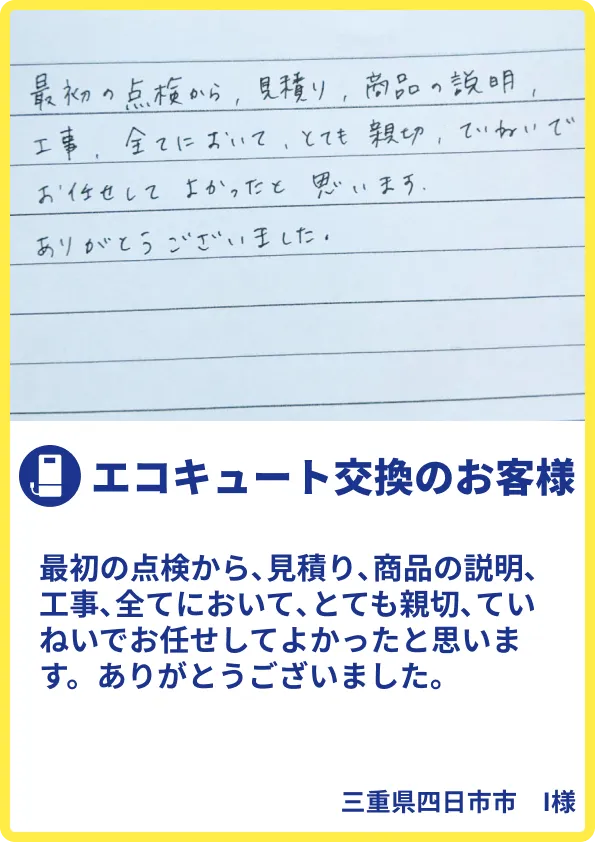 最初の点検から,見積り,商品の説明,
工事,全てにおいて,とても親切,ていねいで
お任せしてよかったと思います.
ありがとうございました。
エコキュート交換のお客様
最初の点検から、見積り、商品の説明、
工事、全てにおいて、とても親切、てい
ねいでお任せしてよかったと思いま
す。ありがとうございました。
三重県四日市市　I様